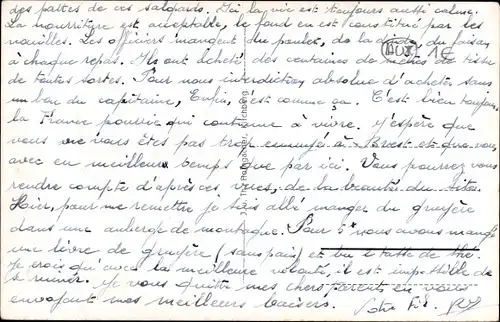 des pattes de ces salopards. Ici la vie est toujours aussi calme.
La nourriture est acceptable, le fond en est constitué par les
nouilles. Les officiers mangent du poulet, de la du faisan
à chaque repas. Ils ont acheté des centaines de mètres de tissu
de toutes sortes. Pour nous interdiction absolue d'acheter sans
un bon du capitaine, Enfin, c'est comme ça. C'est bien toujours
la France pourrie qui continue à vivre. J'espère que
vous ne vous êtes pas trop ennuyé à Brest et que vous
avez eu meilleur temps que par ici. Vous pourrez vous
rendre compte d'après ces vues, de la beauté du site.
Hier, pour me remettre je suis allé manger du gruyère
dans une auberge de montagne. Pour nous avons mangé
une livre de gruyère (sans pain) et bu 1 tasse de thé.
Je crois qu'avec la meilleure volonté, il est impossible de
Je vous quitte mes chers parents en vous
envoyant mes meilleurs baisers. Votre Fils.